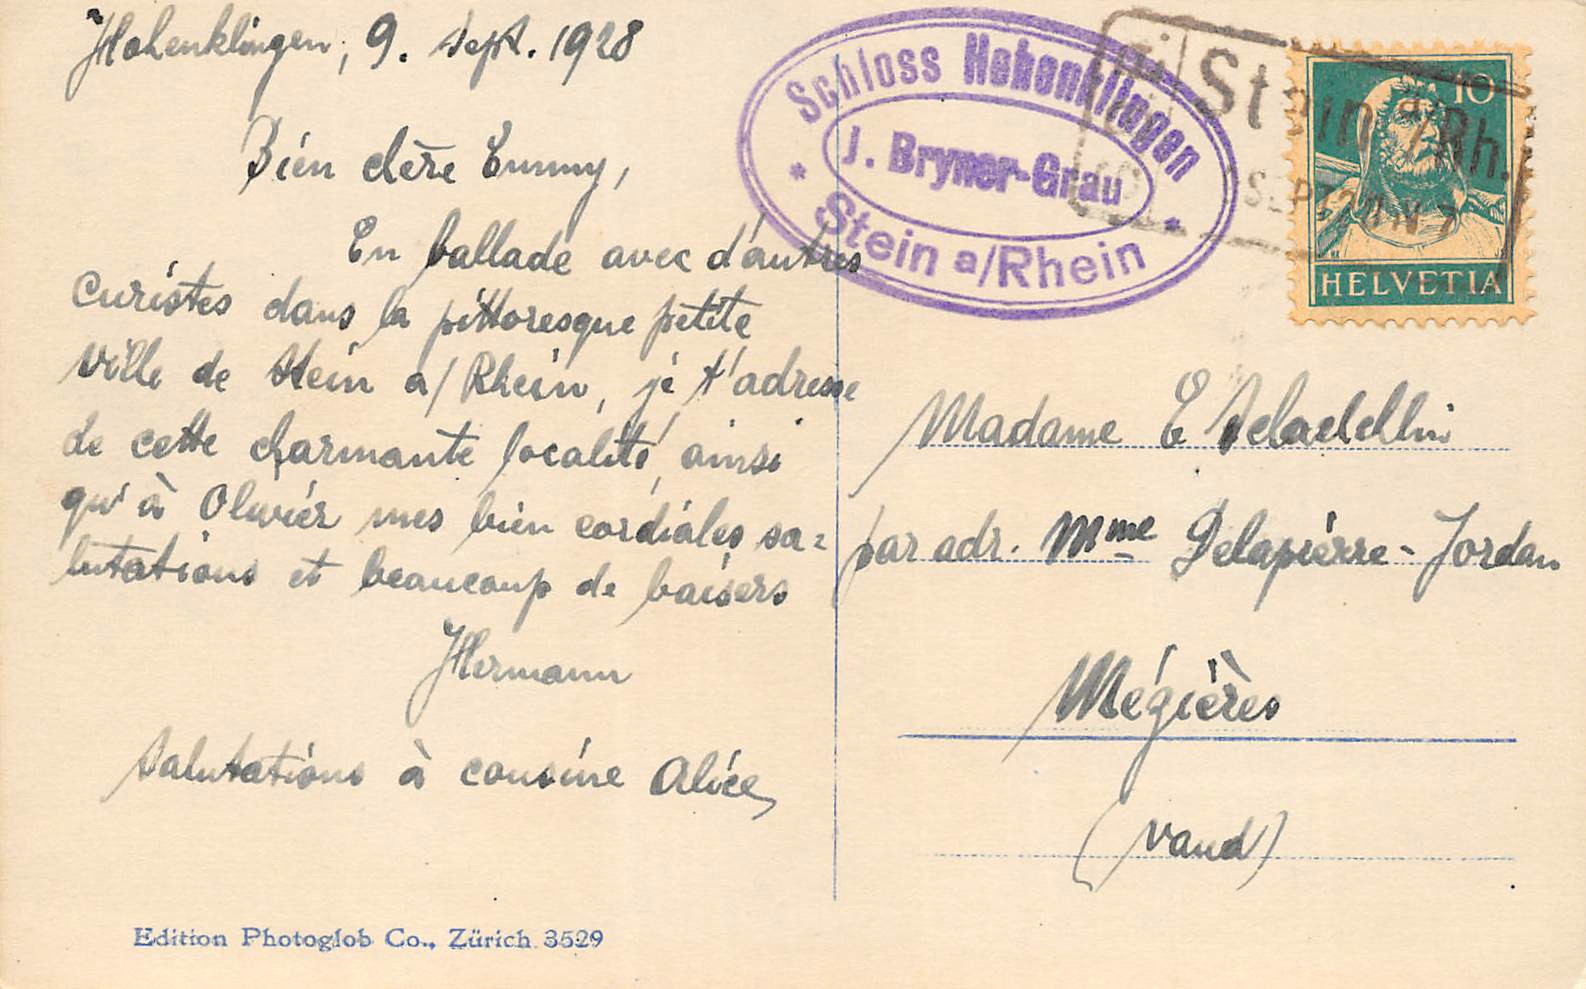 Hohenklingen, 9. Sept. 1928
Bien chère Emmy,
En ballade avec d'autres
curistes dans la pittoresque petite
ville de Stein a/Rhein, je t'adresse
de cette charmante localité, ainsi
qu'à Olivier mes bien cordiales sa=
lutations et beaucoup de baisers
Hermann
Salutations à cousine Alice,
Edition Photoglob Co., Zürich 3529
Schloss Hohenklingen
J. Bryner-Grau
Stein a/Rhein
Stein a/Rh.
SEPT.
10
HELVETIA
Madame E
par adr. Mme Delapierre-Jordan
Mégières
(Vaud)